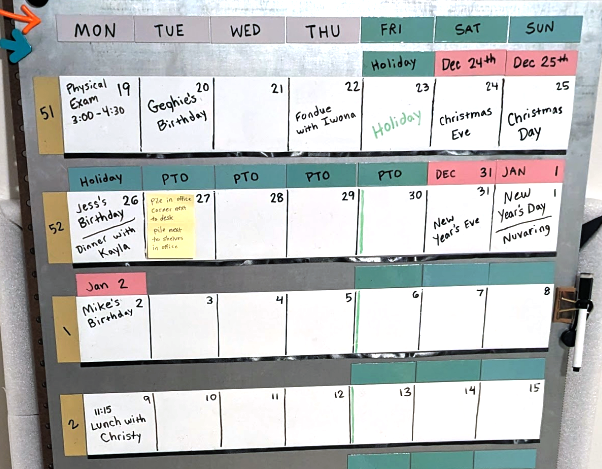 MON TUE WED THU FRI SAT SUN
Holiday Dec 24th Dec 25th
51
Physical Exam 3:00-4:30 19
Geghie's Birthday 20
21
Fondue with Iwona 22
Holiday 23
Christmas Eve 24
Christmas Day 25
Holiday PTO PTO PTO PTO DEC 31 JAN 1
52
Jess's Birthday 26
Dinner with Kayla
27
pile in office
corner next
to desk
pile next
to shelves
in office
28
29
30
New Year's Eve 31
New Year's Day 1
Nuvaring
Jan 2
1
Mike's Birthday 2
3 4 5 6 7 8
2
11:15 Lunch with Christy 9
10 11 12 13 14 15